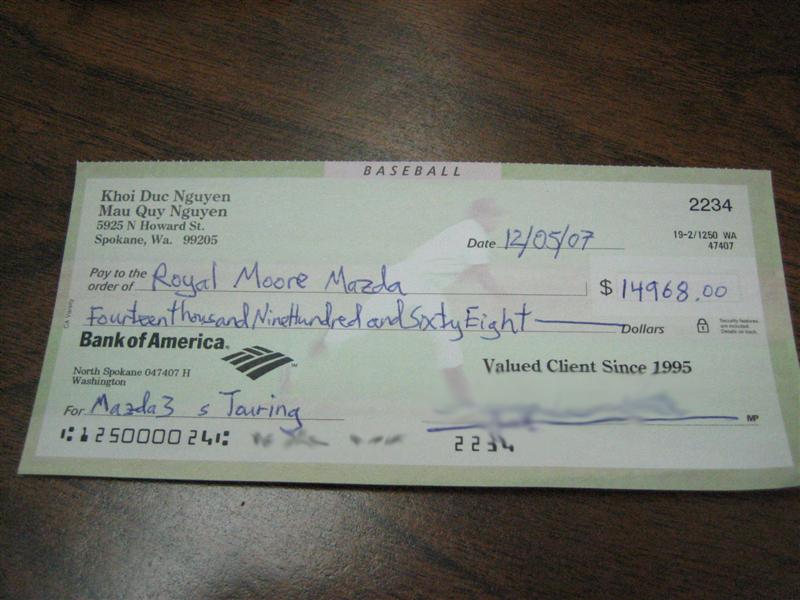 BASEBALL
Khoi Duc Nguyen
Mau Quy Nguyen
5925 N Howard St.
Spokane, Wa. 99205
2234
19-2/1250 WA
47407
Date 12/05/07
Pay to the order of Royal Moore Mazda $ 14968.00
Fourteen thousand Nine Hundred and Sixty Eight Dollars
Security features
are included.
Details on back.
Bank of America
North Spokane 047407 H
Washington
Valued Client Since 1995
For Mazda3 s Touring
MP
⑆125000024⑆ 2234